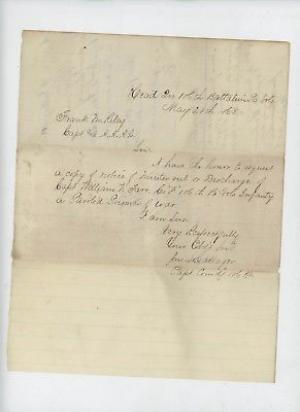 Head Qrs 106th Battalion Pa Vols
May 20th 1865
Frank
Capt & A.A.A.G.
Sir
I have the honor to request
a copy of notice of Muster out or Discharge
Capt William N. Co "F" 106th Pa Vols Infantry
a Paroled Prisoner of war
I am Sir
Very Respectfully
Your Obt Servt
Capt Comdg 106 Pa